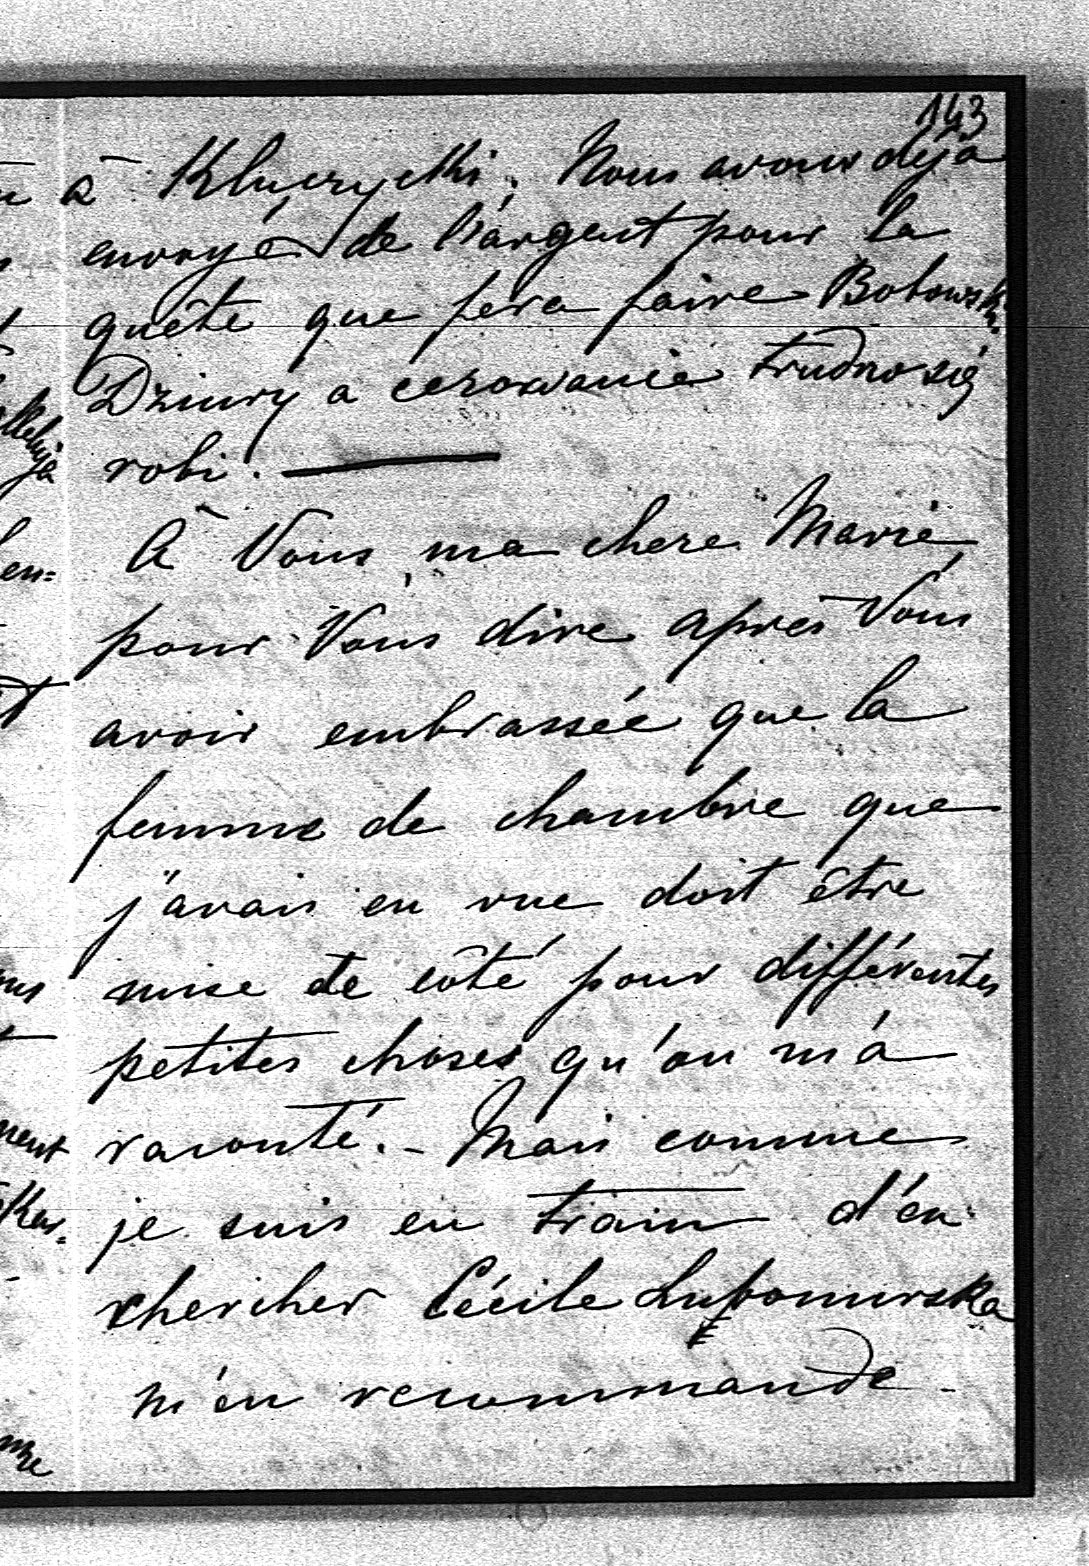 143
à Kluczycki. Nous avons déjà
envoyé de l'argent pour la
quête que fera faire Bobowski.
Dziury a cerowanie trudno się
robi. —
À Vous, ma chere Marie,
pour Vous dire après Vous
avoir embrassée que la
femme de chambre que
j'avais en vue doit être
mise de côté pour différentes
petites choses qu'on m'a
raconté. - Mais comme
je suis en train d'en
chercher Cécile Lubomirska
m'en recommande -